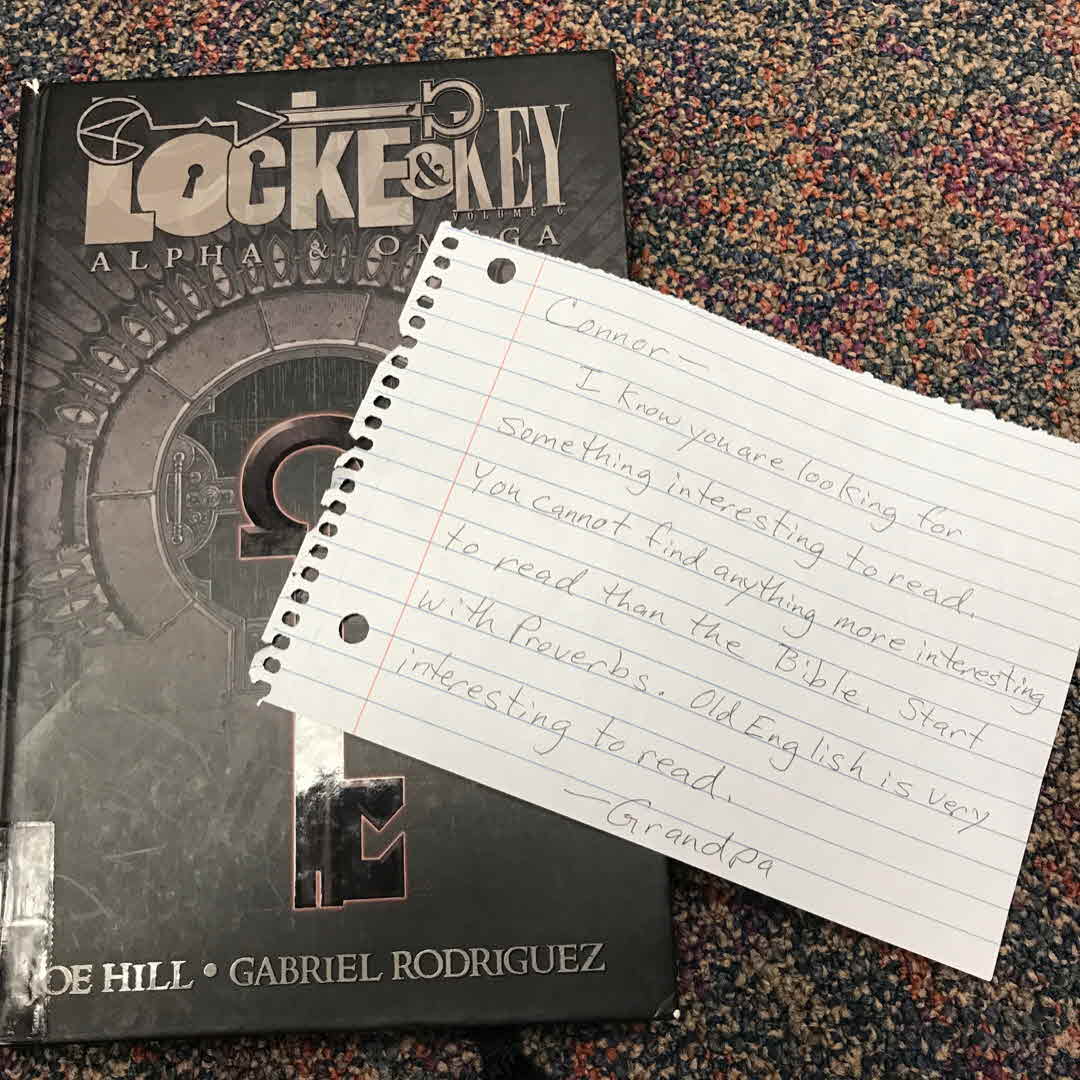 LOCKE & KEY
VOLUME 6
ALPHA & OMEGA
Connor —
I know you are looking for
something interesting to read.
You cannot find anything more interesting
to read than the Bible. Start
with Proverbs. Old English is very
interesting to read.
— Grandpa
OE HILL • GABRIEL RODRIGUEZ